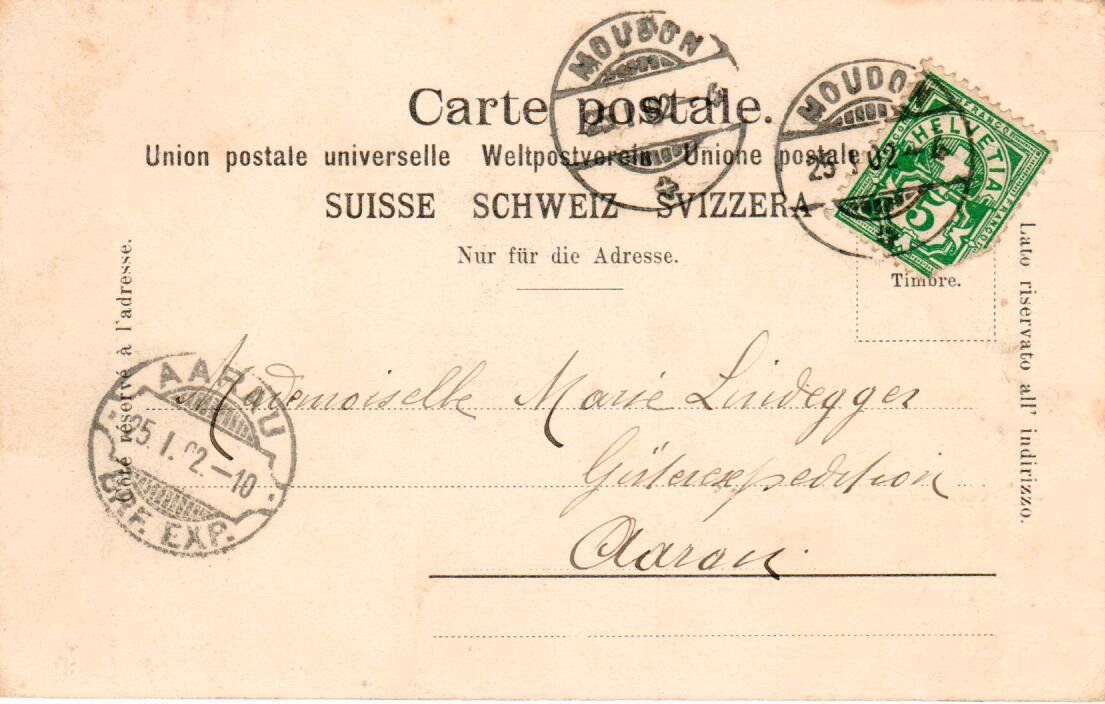 Carte postale.
Union postale universelle Weltpostverein Unione postale
SUISSE SCHWEIZ SVIZZERA
Nur für die Adresse.
MOUDON
25 I 02
MOUDON
25 I 02
FRANCO
HELVETIA
5
FRANCO
Timbre.
Côté réservé à l'adresse.
Lato riservato all' indirizzo.
AARAU
25. I. 02.-10
BRF. EXP.
Mademoiselle Marie Lindegger
Güterexpedition
Aarau.